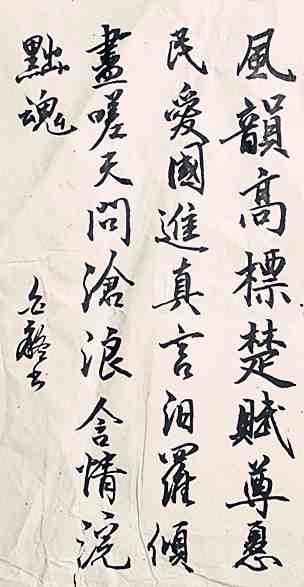 風韻高標楚賦尊憂
民愛國進真言汨羅傾
盡嗟天問滄浪含情浣
黜魂
書